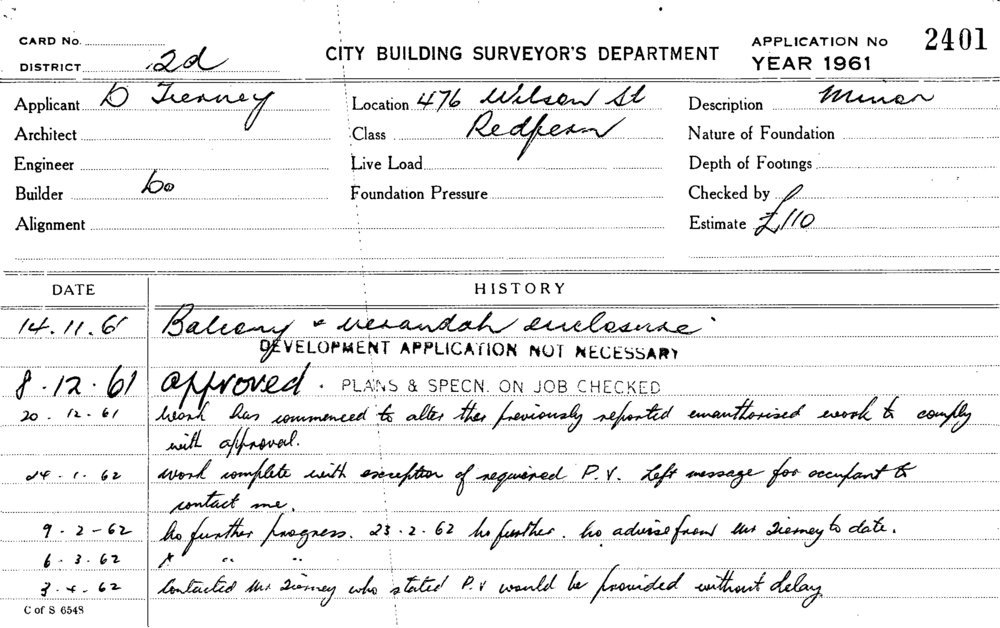 CARD No.
DISTRICT 2d
CITY BUILDING SURVEYOR'S DEPARTMENT
APPLICATION No 2401
YEAR 1961
Applicant D Tierney
Location 476 Wilson St
Description Minor
Architect
Class Redfern
Nature of Foundation
Engineer
Live Load
Depth of Footings
Builder Do
Foundation Pressure
Checked by
Alignment
Estimate £110
DATE HISTORY
14.11.61 Balcony & verandah enclosure
DEVELOPMENT APPLICATION NOT NECESSARY
8.12.61 approved. PLANS & SPECN. ON JOB CHECKED
20.12.61 work has commenced to alter the previously reported unauthorised work to comply
with approval.
24.1.62 work complete with exception of required P.V. Left message for occupant to
contact me.
9-2-62 No further progress. 23.2.62 No further. No advise from Mr Tierney to date.
6.3.62 " " "
3.4.62 Contacted Mr Tierney who stated P.V would be provided without delay.
C of S 6548